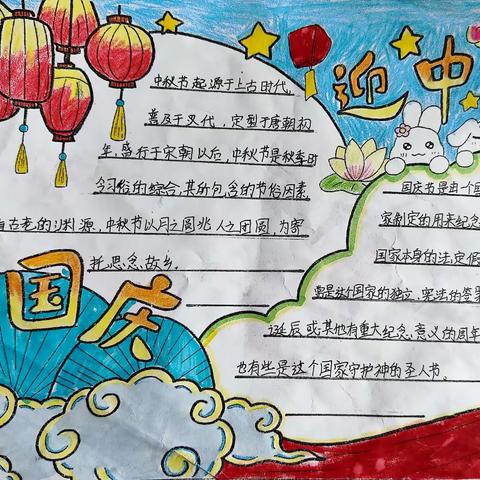 迎中
中秋节起源于上古时代,
普及于汉代,定型于唐朝初
年,盛行于宋朝以后,中秋节是秋季时
令习俗的综合,其所包含的节俗因素,
自古老的渊源,中秋节以月之圆兆人之团圆,为寄
托思念故乡。
国庆
国庆节是由个国
家制定的用来纪念
国家本身的法定假
要是这个国家的独立、宪法的签署
诞辰或其他有重大纪念意义的周年
也有些是这个国家守护神的圣人节。